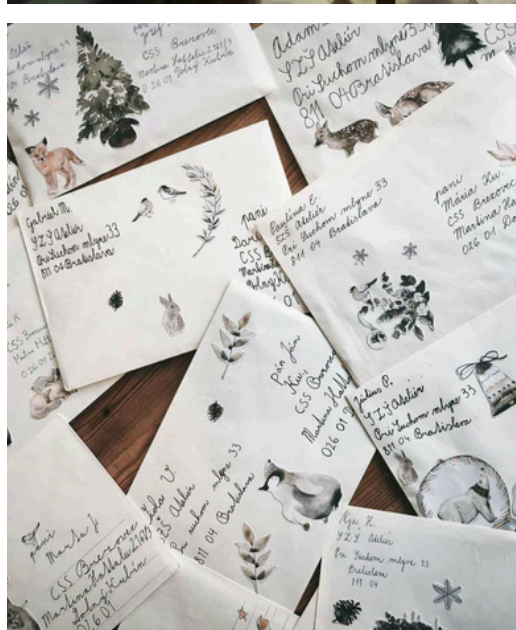 pani
CSS Brezovec
Martina Hattalu 2161/3
026 01 Dolný Kubín
Ateliér
mlyne 33
Bratislava
Adam
SZŠ Ateliér
Pri Suchom mlyne 33
811 04 Bratislava
CSS
Gabriel M.
SZŠ Ateliér
Pri Suchom mlyne 33
811 04 Bratislava
pani
CSS B
Martina
Dolný Kubí
Paulína E.
SZŠ Ateliér
Pri Suchom mlyne 33
811 04 Bratislava
pani
Mária Ku.
CSS Brezovec
Martina Ha
026 01 Do
CSS Brezov
026 01
pán Ján
CSS Brezovec
Martina Hatta
026 01 D
V.
SZŠ Ateliér
Pri suchom mlyne 33
811 04 Bratislava
Július P.
SZŠ Ateliér
Pri Suchom mlyne 33
811 04 Bratislava
pani
Marta J
CSS Brezovec
Martina Hattalu 2161/3
Dolný Kubín
026 01
H.
SZŠ Ateliér
Pri Suchom mlyne 33
Bratislava
811 04